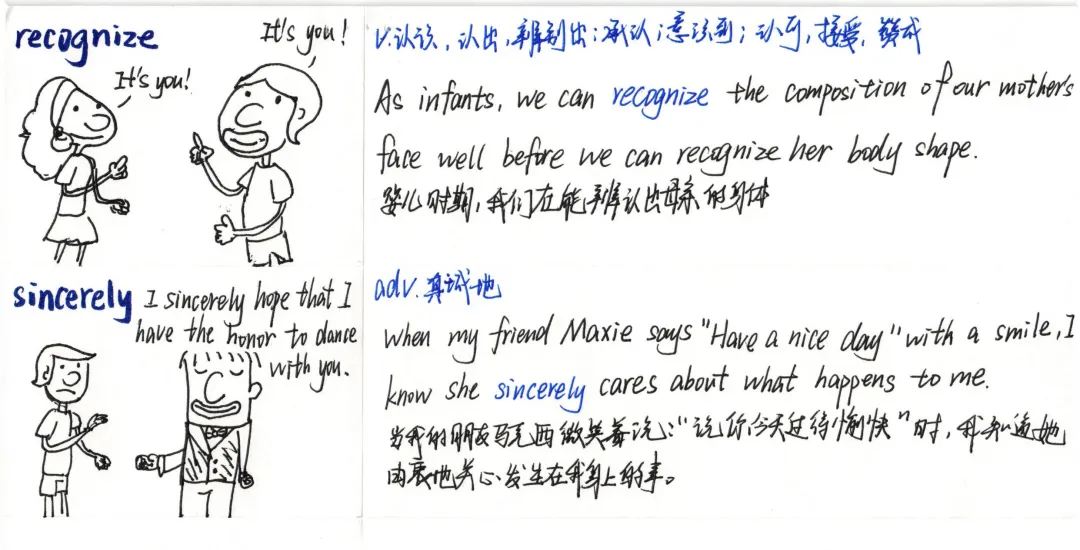 recognize
It's you!
It's you!
v.认识，认出，辨别出；承认；意识到；认可，接受，赞成
As infants, we can recognize the composition of our mother's
face well before we can recognize her body shape.
婴儿时期，我们在能辨认出母亲的身体
sincerely
I sincerely hope that I
have the honor to dance
with you.
adv.真诚地
when my friend Maxie says "Have a nice day" with a smile, I
know she sincerely cares about what happens to me.
当我的朋友马克西微笑着说："祝你今天过得愉快"时，我知道她
由衷地关心发生在我身上的事。